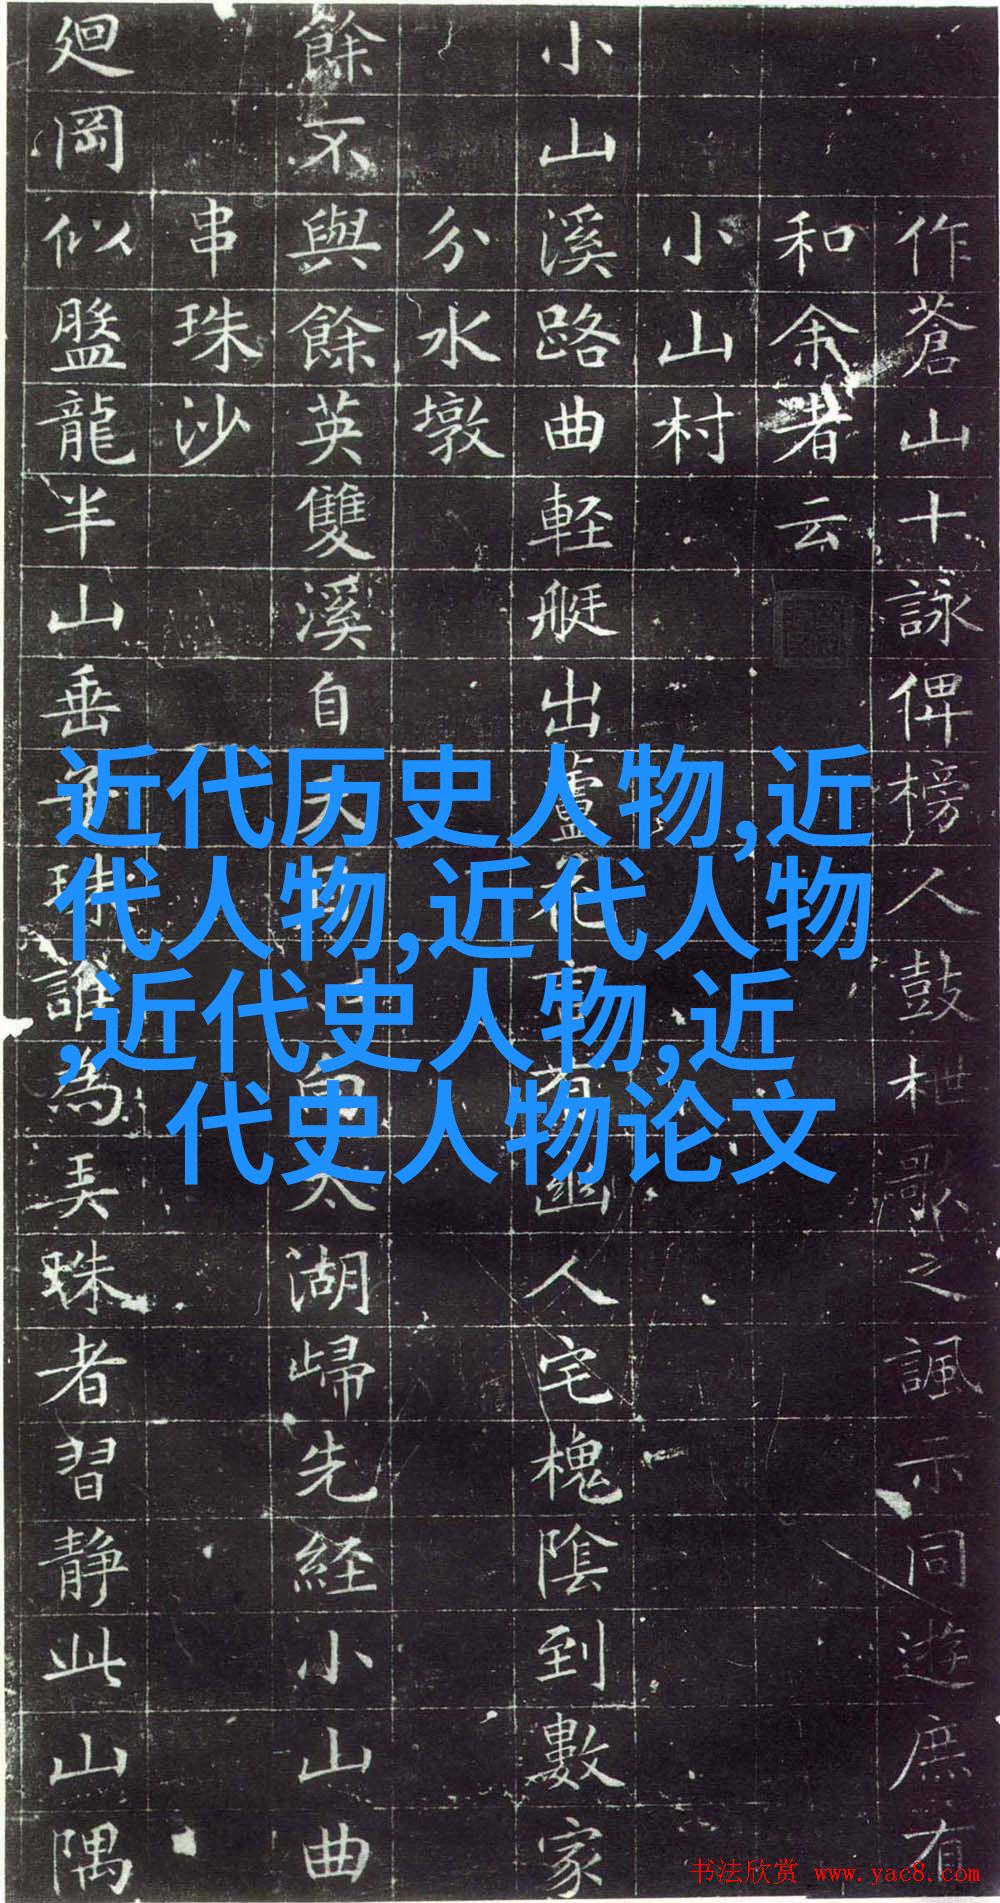 作蒼山十詠俾榜人鼓枻歌之諷示同遊庶有
和余者云
小山村
小山溪路曲軽艇出蘆花言有幽人宅槐陰到數家
分水墩
餘不與餘英雙溪自太湖歸先経小山曲
串珠沙
廻岡似盤龍半山垂珠誰為弄珠者習静此山隅
近代历史人物,近
代人物,近代人物
,近代史人物,近
代史人物论文
书法欣赏 www.yac8.com